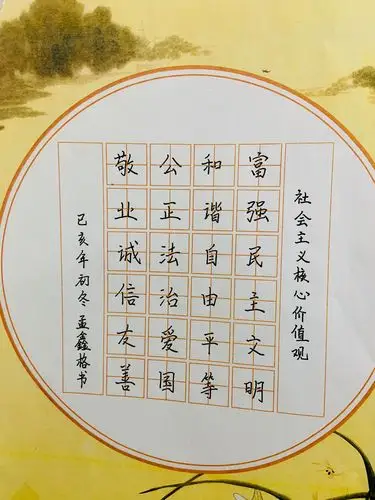 社会主义核心价值观
富强民主文明
和谐自由平等
公正法治爱国
敬业诚信友善
己亥年初冬孟鑫格书